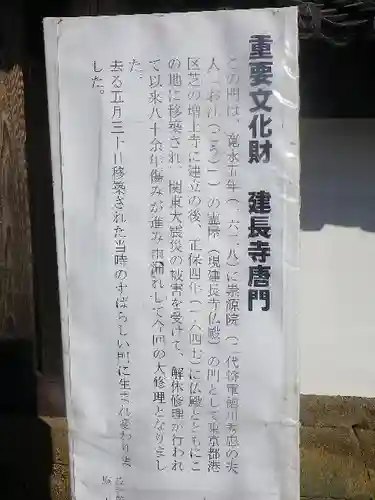 重要文化財 建長寺唐門
この門は、寛永五年(一六二八)に崇源院(二代将軍徳川秀忠の夫
人「お江(ごう)」)の霊屋(現建長寺仏殿)の門として東京都港
区芝の増上寺に建立の後、正保四年(一六四七)に仏殿とともにこ
の地に移築され、関東大震災の被害を受けて、解体修理が行われ
て以来八十余年傷みが進み雨漏れして今回の大修理となりまし
た。
去る五月三十日移築された当時のすばらしい門に生まれ変わりま
した。